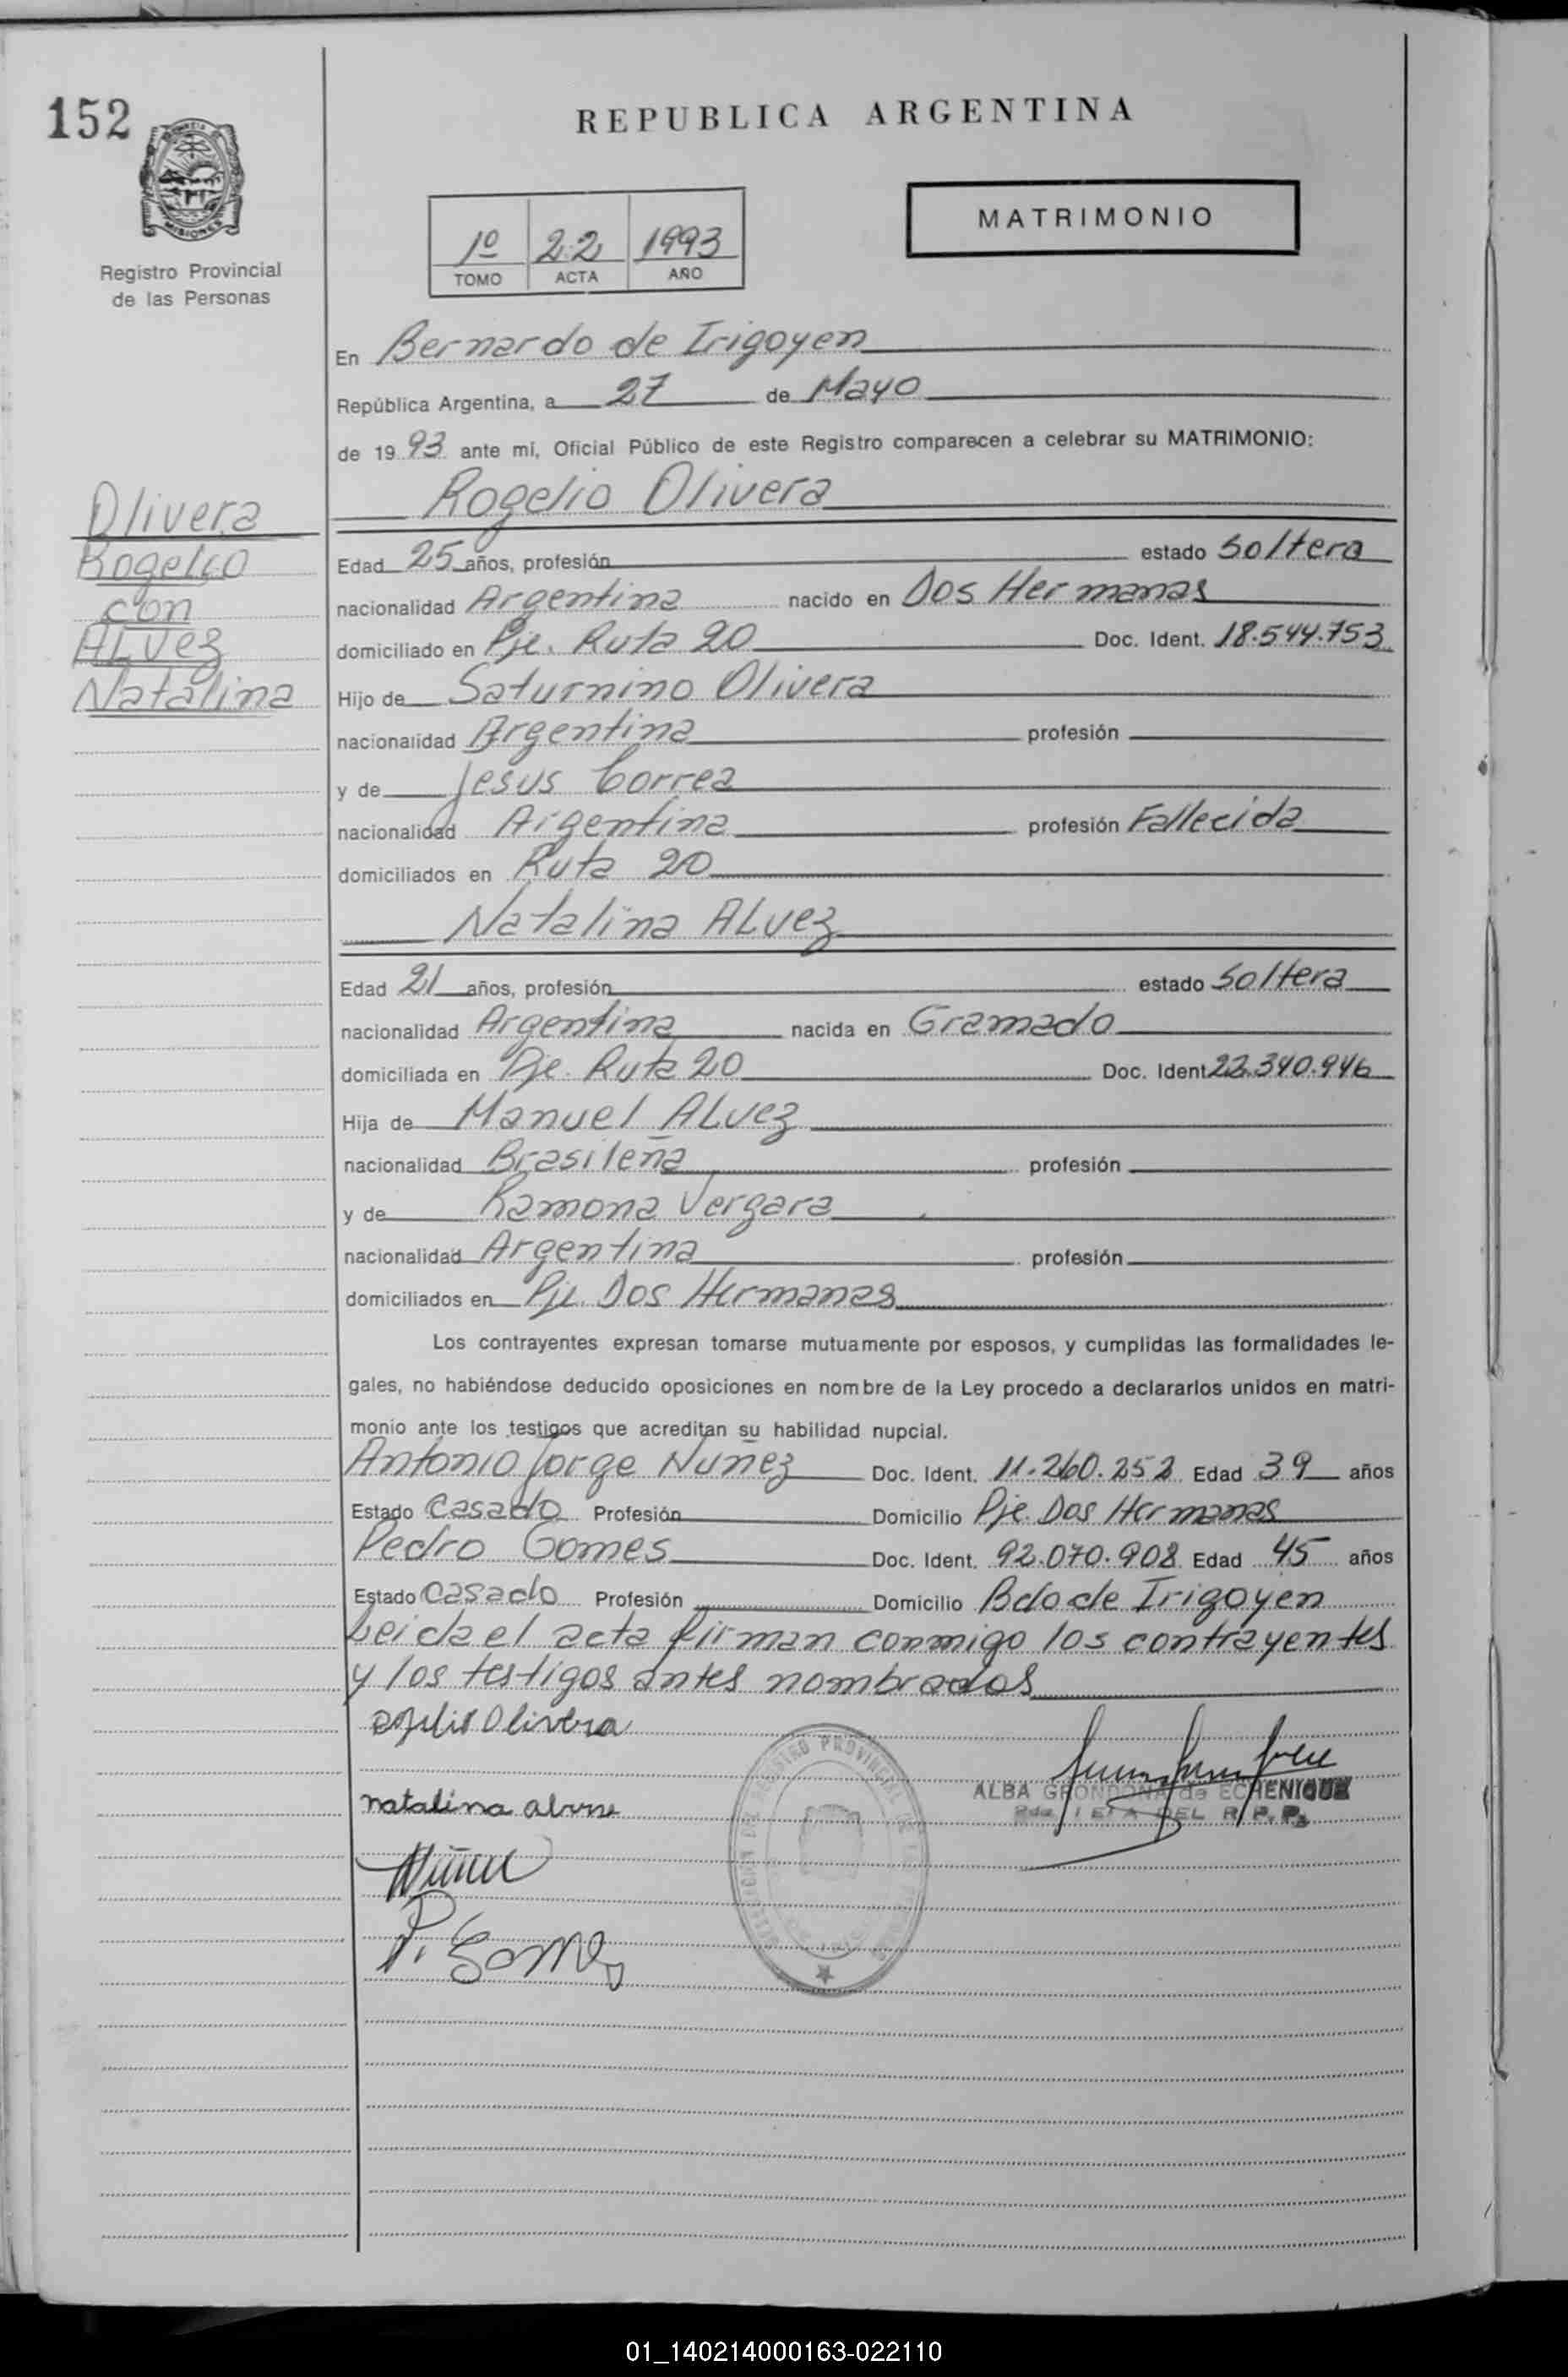 152
REPUBLICA ARGENTINA
MISIONES
Registro Provincial
de las Personas
1º 22 1993
TOMO ACTA AÑO
MATRIMONIO
En Bernardo de Irigoyen
República Argentina, a 27 de Mayo
de 1993 ante mí, Oficial Público de este Registro comparecen a celebrar su MATRIMONIO:
Olivera
Rogelio
con
ALvez
Natalina
Rogelio Olivera
Edad 25 años, profesión estado Soltera
nacionalidad Argentina nacido en Dos Hermanas
domiciliado en Pje. Ruta 20 Doc. Ident. 18.544.753
Hijo de Saturnino Olivera
nacionalidad Argentina profesión
y de Jesus Correa
nacionalidad Argentina profesión Fallecida
domiciliados en Ruta 20
Natalina ALvez
Edad 21 años, profesión estado Soltera
nacionalidad Argentina nacida en Gramado
domiciliada en Pje. Ruta 20 Doc. Ident 22.340.946
Hija de Manuel ALvez
nacionalidad Brasileña profesión
y de Ramona Vergara
nacionalidad Argentina profesión
domiciliados en Pje. Dos Hermanas
Los contrayentes expresan tomarse mutuamente por esposos, y cumplidas las formalidades le-
gales, no habiéndose deducido oposiciones en nombre de la Ley procedo a declararlos unidos en matri-
monio ante los testigos que acreditan su habilidad nupcial.
Antonio Jorge Nuñez Doc. Ident. 11.260.252 Edad 39 años
Estado Casado Profesión Domicilio Pje. Dos Hermanas
Pedro Gomes Doc. Ident. 92.070.908 Edad 45 años
Estado Casado Profesión Domicilio Bdo de Irigoyen
Leida el acta firman conmigo los contrayentes
y los testigos antes nombrados
Olivera
ALBA GRONDONA de ECHENIQUE
DEL R. P. P.
natalina
Nuñez
P. Gomes
01_140214000163-022110